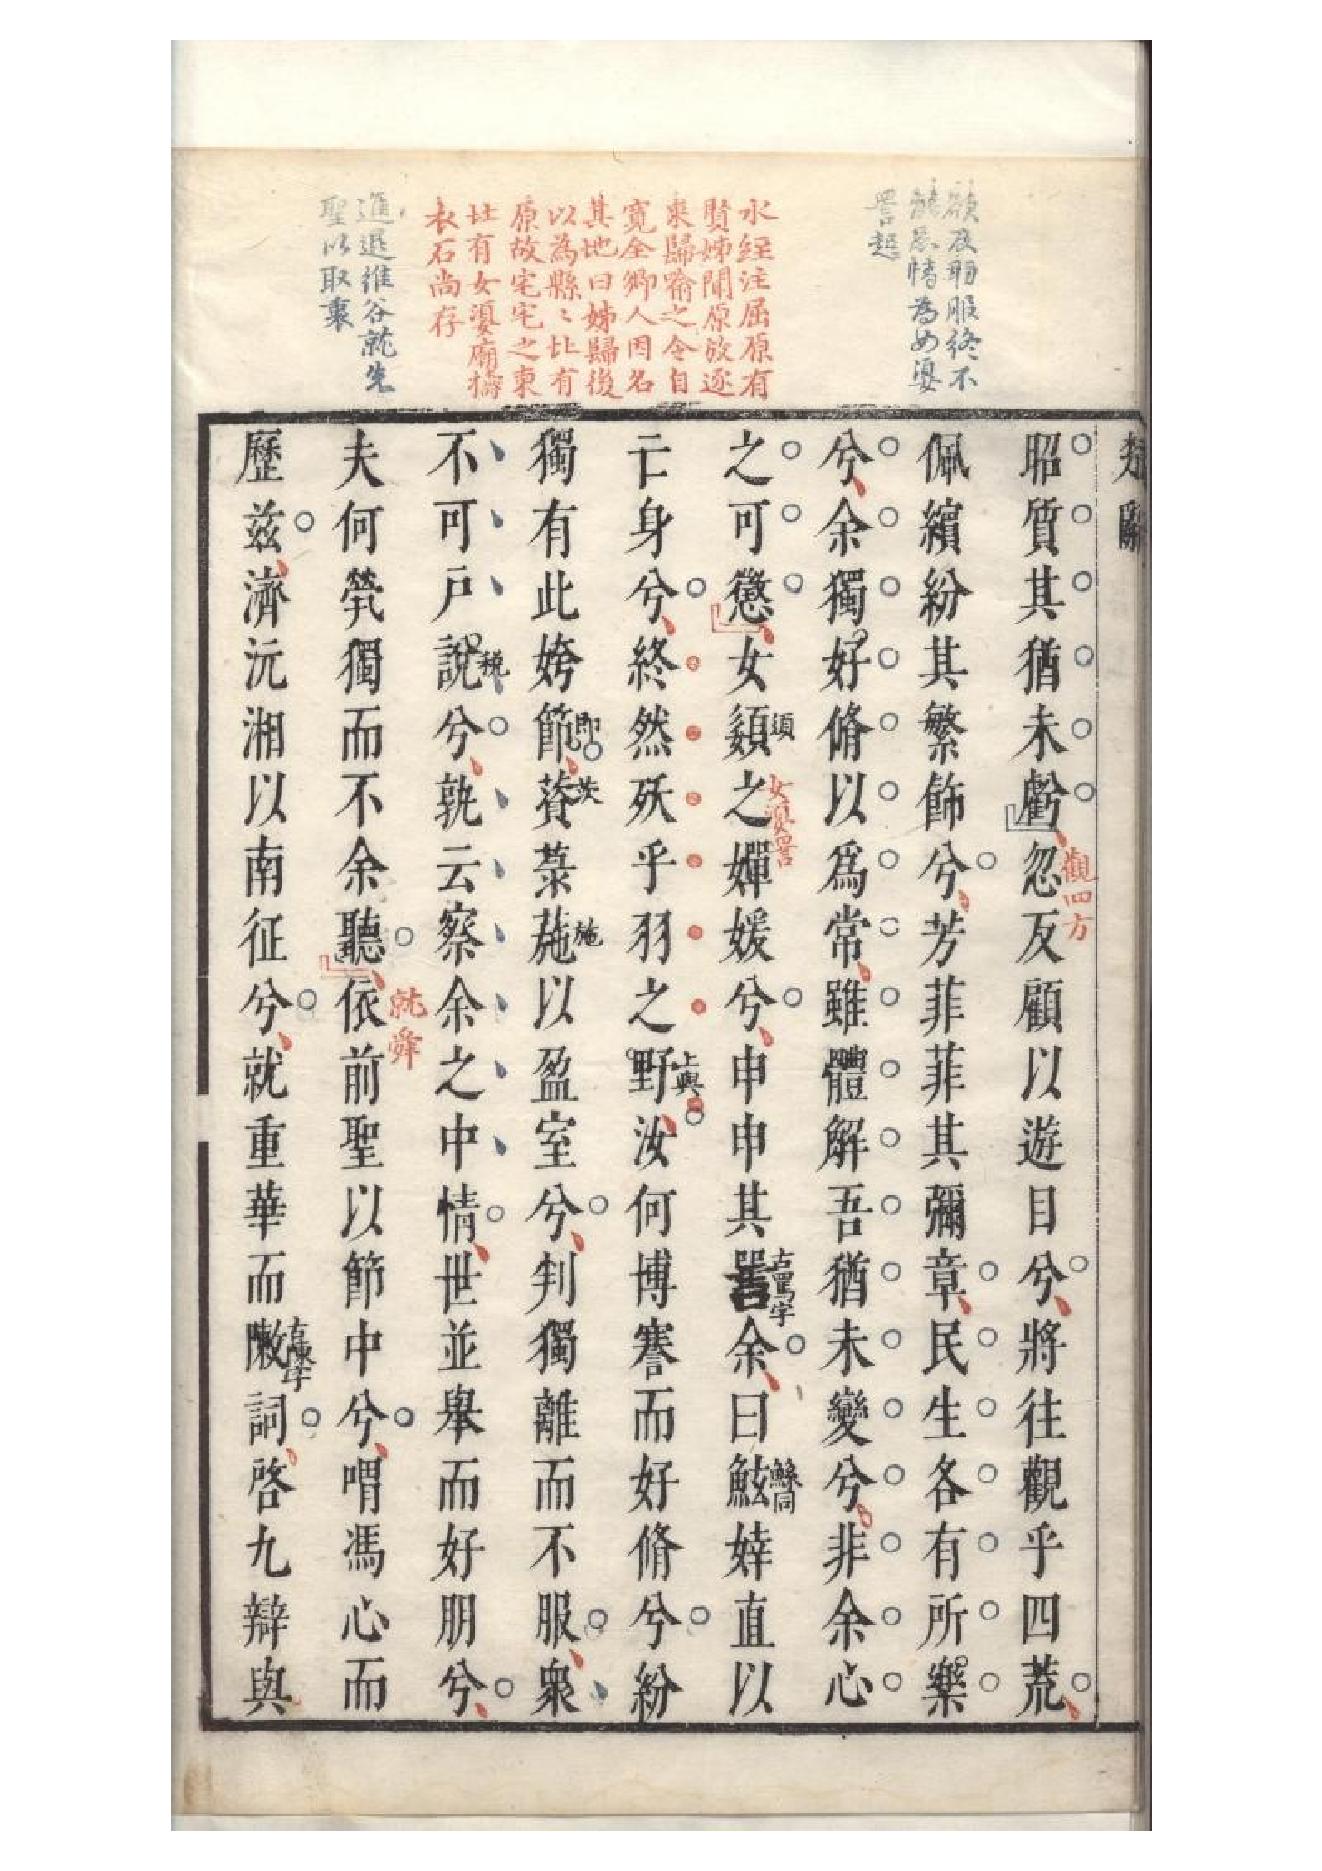 水經注屈原有
賢姊聞原放逐
來歸喻之令自
寬全鄉人因名
其地曰姊歸後
以為縣〻北有
原故宅宅之東
北有女嬃廟擣
衣石尚存
進退維谷就先
聖以取衷
昭質其猶未虧忽反顧以遊目兮將往觀乎四荒
觀四方
佩繽紛其繁飾兮芳菲菲其彌章民生各有所樂
兮余獨好脩以爲常雖體解吾猶未變兮非余心
之可懲女嬃之嬋媛兮申申其詈余曰鮌婞直以
須
女嬃詈
古詈字
鯀同
亡身兮終然殀乎羽之野汝何博謇而好脩兮紛
上與
獨有此姱節薋菉葹以盈室兮判獨離而不服衆
即
茨
施
不可戶說兮孰云察余之中情世並舉而好朋兮
稅
夫何煢獨而不余聽依前聖以節中兮喟馮心而
就舜
歷茲濟沅湘以南征兮就重華而敶詞啓九辯與
古陳字